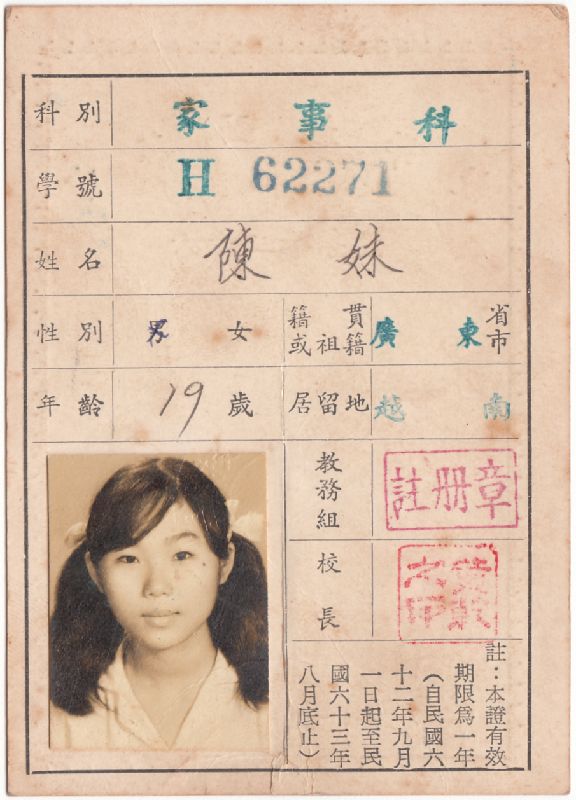 科別 家事科
學號 H 62271
姓名 陳妹
性別 男 女 籍貫或祖籍 廣東 省市
年齡 19歲 居留地 越南
教務組 註册章
校長
註：本證有效
期限爲一年
（自民國六
十二年九月
一日起至民
國六十三年
八月底止）